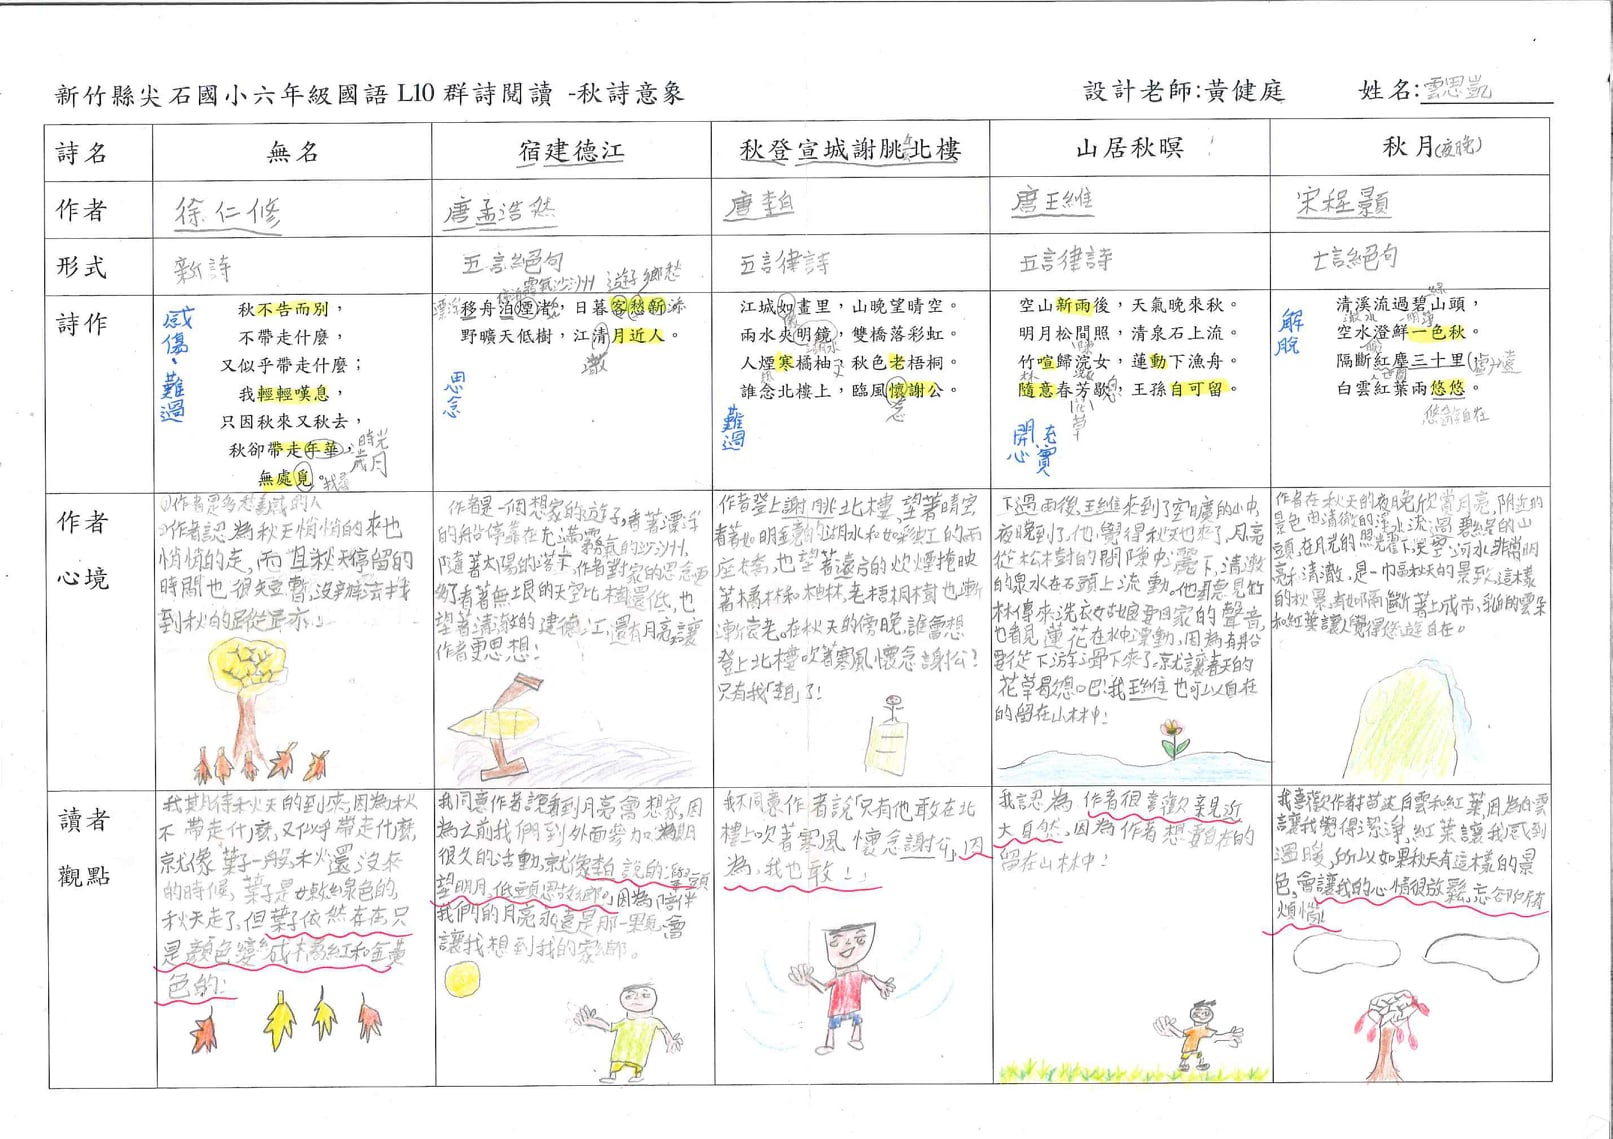 新竹縣尖石國小六年級國語 L10 群詩閱讀 -秋詩意象
設計老師:黃健庭
姓名:雲思凱
詩名
無名
宿建德江
秋登宣城謝朓北樓
山居秋暝
秋月(夜晚)
作者
徐仁修
唐孟浩然
唐李白
唐王維
宋程顥
形式
新詩
五言絕句
五言律詩
五言律詩
七言絕句
詩作
秋不告而別，
不帶走什麼，
又似乎帶走什麼；
我輕輕嘆息，
只因秋來又秋去，
秋卻帶走年華，
無處覓。
時光
歲月
感傷、難過
移舟泊煙渚，日暮客愁新。
野曠天低樹，江清月近人。
遊子鄉愁
漂浮
澈
思念
江城如畫里，山晚望晴空。
兩水夾明鏡，雙橋落彩虹。
人煙寒橘柚，秋色老梧桐。
誰念北樓上，臨風懷謝公。
念
難過
空山新雨後，天氣晚來秋。
明月松間照，清泉石上流。
竹喧歸浣女，蓮動下漁舟。
隨意春芳歇，王孫自可留。
林
開心
充實
清溪流過碧山頭，
空水澄鮮一色秋。
隔斷紅塵三十里，
白雲紅葉兩悠悠。
綠
悠遊自在
解脫
作者
心境
①作者是多愁善感的人
②作者認為秋天悄悄的來也
悄悄的走，而且秋天停留的
時間也很短暫，沒辦法去找
到秋的蹤跡。
作者是一個想家的遊子，看著漂浮
的船停靠在充滿霧氣的沙洲，
隨著太陽的落下，作者對家的思念更
好了看著無垠的天空比樹還低，也
望著清澈的建德江，還有月亮，讓
作者更思想！
作者登上謝朓北樓，望著晴空，
看著如明鏡的湖水和如彩虹的兩
座橋，也望著遠方的炊煙掩映
著橘林和柚林，老梧桐樹也漸
漸衰老。在秋天的傍晚，誰會想
登上北樓吹著寒風懷念謝公？
只有我「李白」了！
下過雨後，王維來到了空曠的山中，
夜晚到了，他覺得秋天也來了，月亮
從松樹的間隙中灑下，清澈
的泉水在石頭上流動。他聽見竹
林傳來洗衣姑娘要回家的聲音，
也看見蓮花在水中漂動，因為有船
要從下游滑下來了，就讓春天的
花草歇息吧！我王維也可以自在
的留在山林中！
作者在秋天的夜晚欣賞月亮，附近的
景色由清澈的溪水流過碧綠的山
頭，在月光的照耀下，溪水非常明
亮和清澈，是一幅秋天的景致，這樣
的秋景，有如隔斷著上城市，白的雲朵
和紅葉讓人覺得悠遊自在。
讀者
觀點
我期待秋天的到來，因為秋
不帶走什麼，又似乎帶走什麼，
就像葉子一般，未火還沒來
的時候，葉子是嫩綠色的，
秋天走了，但葉子依然在，只
是顏色變成橘紅和金黃
色的！
我同意作者說看到月亮會想家，因
為之前我們到外面參加為期
很久的活動，就像李白說的：舉頭
望明月，低頭思故鄉，因為陪伴
我們的月亮永遠是那一顆，會
讓我想到我的家鄉。
我不同意作者說「只有他敢在北
樓上吹著寒風懷念謝公，因
為，我也敢！」
我認為作者很喜歡親近
大自然，因為作者想要自在的
留在山林中！
我喜歡作者描述白雲和紅葉，因為白雲
讓我覺得潔淨，紅葉讓我感到
溫暖，所以如果秋天有這樣的景
色，會讓我的心情很放鬆，忘卻所有
煩惱！